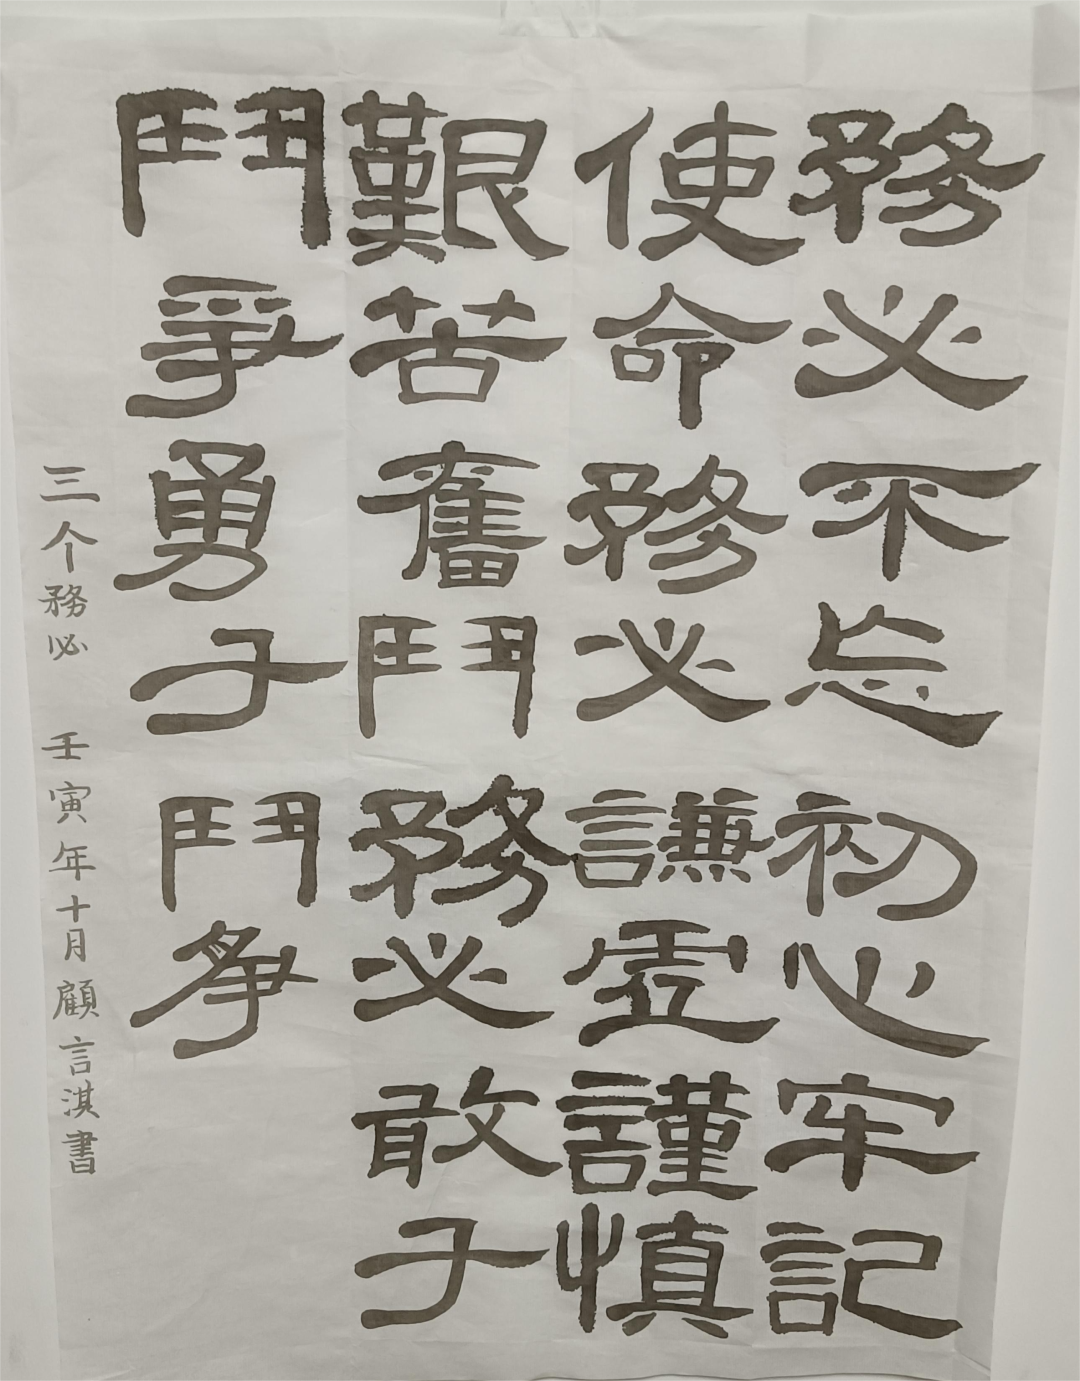 務必不忘初心牢記
使命務必謙虛謹慎
艱苦奮鬥務必敢子
鬥爭勇子鬥爭
三个務必 壬寅年十月顧言淇書